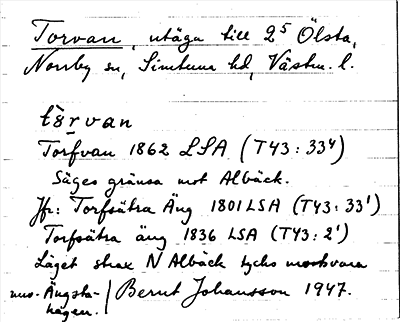 Torvan, utäga till 2⁵ Ölsta,
Norrby sn, Simtuna hd, Västm. l.
tòrvan
Torfvan 1862 LSA (T43:33⁴)
Säges gränsa mot Albäck.
Jfr: Torfsätra Äng 1801 LSA (T43:33¹)
Torfsätra äng 1836 LSA (T43:2¹)
Läget strax N Albäck tycks motsvara
nuv. Ängsta-
hagen. / Bernt Johansson 1947.